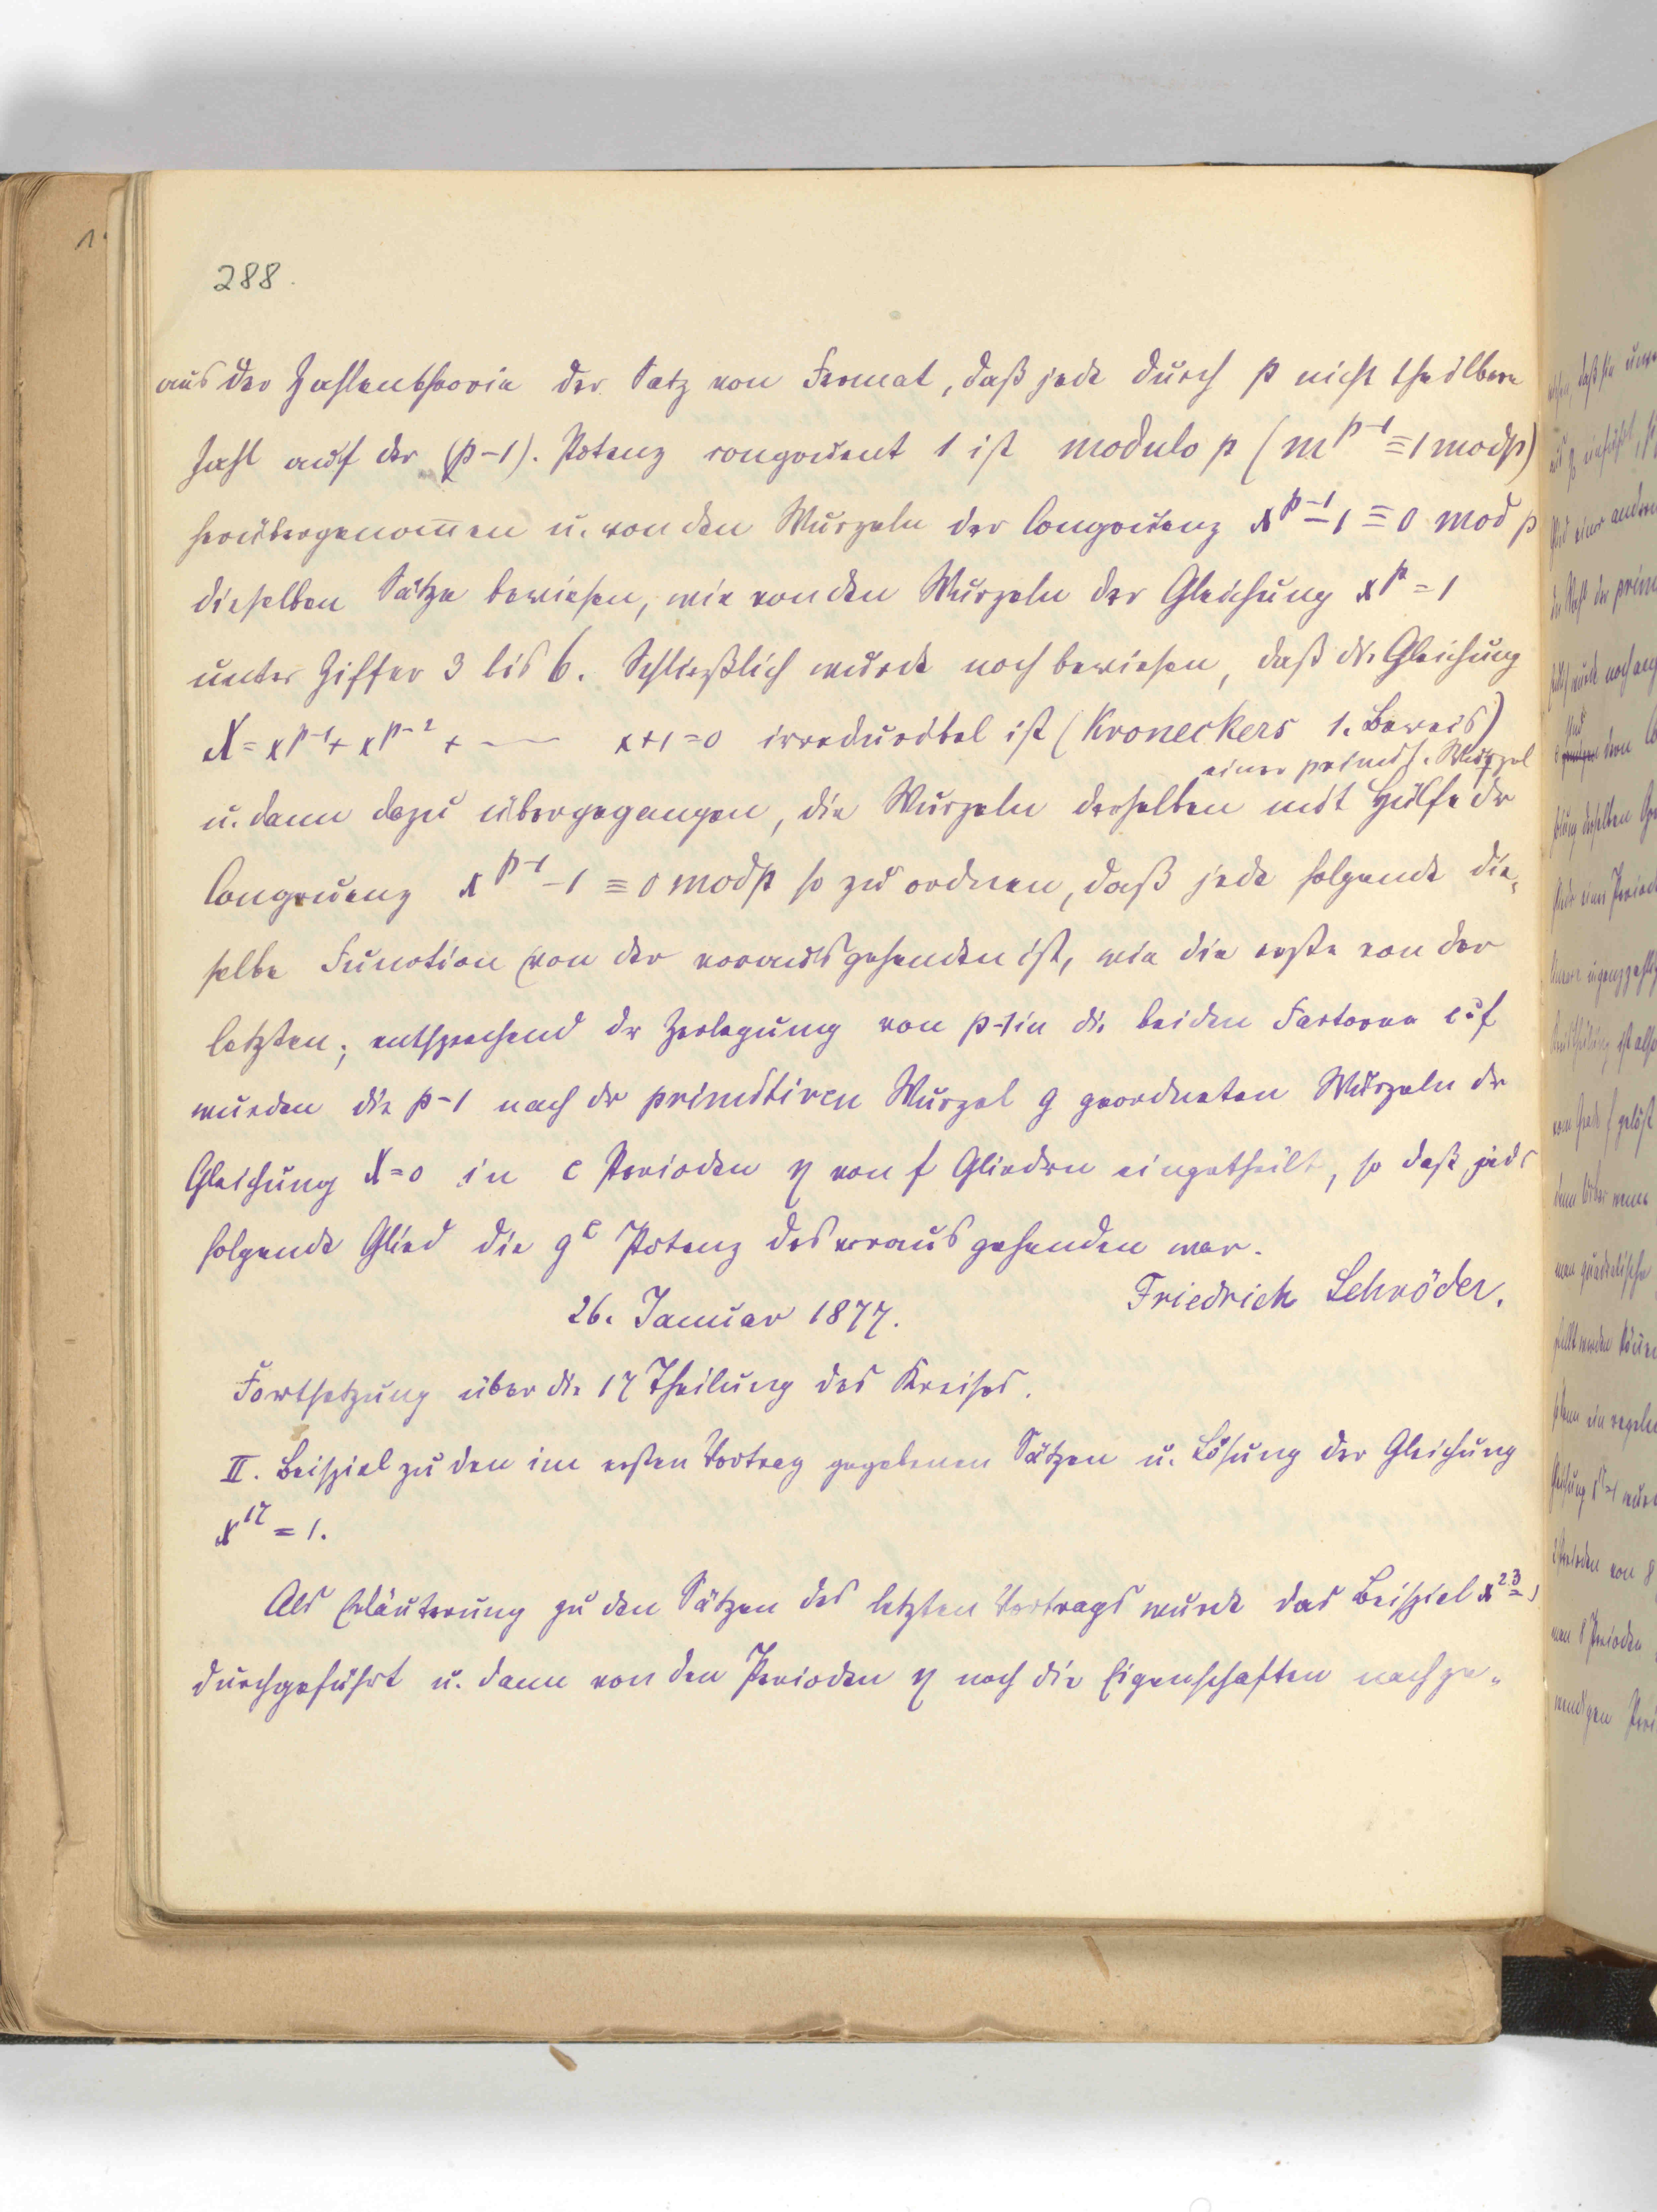 288.
aus der Zahlentheorie der Satz von Fermat, daß jede durch p nicht theilbare
Zahl auf der (p-1). Potenz congruent 1 ist modulo p (m^{p-1} ≡ 1 mod p)
herübergenom̅en u. von den Wurzeln der Congruenz x^{p-1} - 1 ≡ 0 mod p
dieselben Sätze bewiesen, wie von den Wurzeln der Gleichung x^p = 1
unter Ziffer 3 bis 6. Schließlich wurde noch bewiesen, daß die Gleichung
X = x^{p-1} + x^{p-2} + ---- x+1=0 irreducibel ist (Kroneckers 1. Beweis)
einer primit. Wurzel
u. dann dazu übergegangen, die Wurzeln derselben mit Hülfe der
Congruenz x^{p-1} - 1 ≡ 0 mod p so zu ordnen, daß jede folgende die-
selbe Function von der vorausgehenden ist, wie die erste von der
letzten; entsprechend der Zerlegung von p-1 in die beiden Factoren e·f
wurden die p-1 nach der primitiven Wurzel g geordneten Wurzeln der
Gleichung X=0 in e Perioden η von f Gliedern eingetheilt, so daß jede
folgende Glied die g^e Potenz des vorausgehenden war.
Friedrich Schröder.
26. Januar 1877.
Fortsetzung über die 17 Theilung des Kreises.
II. Beispiel zu den im ersten Vortrag gegebenen Sätzen u. Lösung der Gleichung
x^{17} = 1.
Als Erläuterung zu den Sätzen des letzten Vortrags wurde das Beispiel x^{23} = 1
durchgeführt u. dann von den Perioden η noch die Eigenschaften nachge-